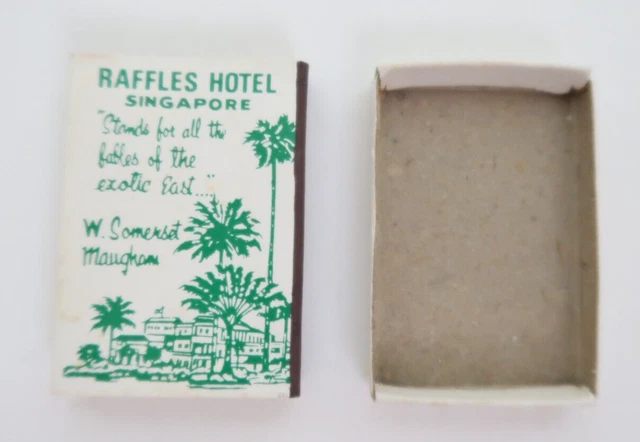 RAFFLES HOTEL
SINGAPORE
"Stands for all the
fables of the
exotic East...."
W. Somerset
Maugham